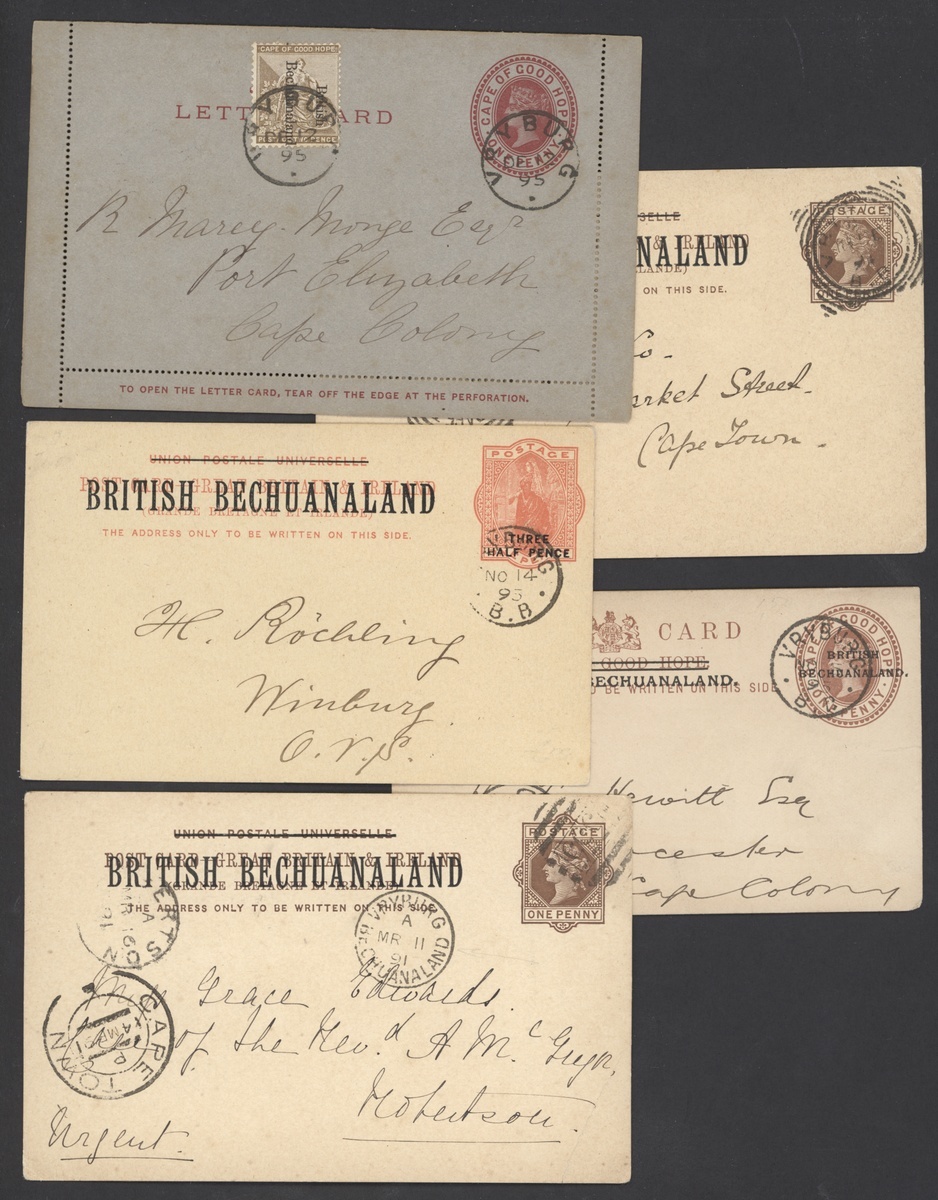 LETTER CARD
CAPE OF GOOD HOPE
British
Bechuanaland
CAPE OF GOOD HOPE
ONE PENNY
VRYBURG
95
VRYBURG
95
R Marcy-Monge Esqr
Port Elizabeth
Cape Colony
TO OPEN THE LETTER CARD, TEAR OFF THE EDGE AT THE PERFORATION.
SELLE
& IRELAND
NALAND
LANDE)
ON THIS SIDE.
POSTAGE
Co-
arket Street
Cape Town -
UNION POSTALE UNIVERSELLE
POST CARD-GREAT BRITAIN & IRELAND
BRITISH BECHUANALAND
(GRANDE BRETAGNE ET IRLANDE)
THE ADDRESS ONLY TO BE WRITTEN ON THIS SIDE.
POSTAGE
THREE
HALF PENCE
NO 14
95
B.B
H. Röchling
Winburg
O.V.S.
CARD
GOOD HOPE
BECHUANALAND.
O BE WRITTEN ON THIS SIDE
CAPE OF GOOD HOPE
BRITISH
BECHUANALAND.
ONE PENNY
VRYBURG
Hewitt Esq
ocester
Cape Colony
UNION POSTALE UNIVERSELLE
POST CARD-GREAT BRITAIN & IRELAND
BRITISH BECHUANALAND
(GRANDE BRETAGNE ET IRLANDE)
THE ADDRESS ONLY TO BE WRITTEN ON THIS SIDE
POSTAGE
ONE PENNY
VRYBURG
A
MR 11
91
BECHUANALAND
CAPE TOWN
Grace Edwards
of the Rev.d A Mc
Robertson.
Urgent.